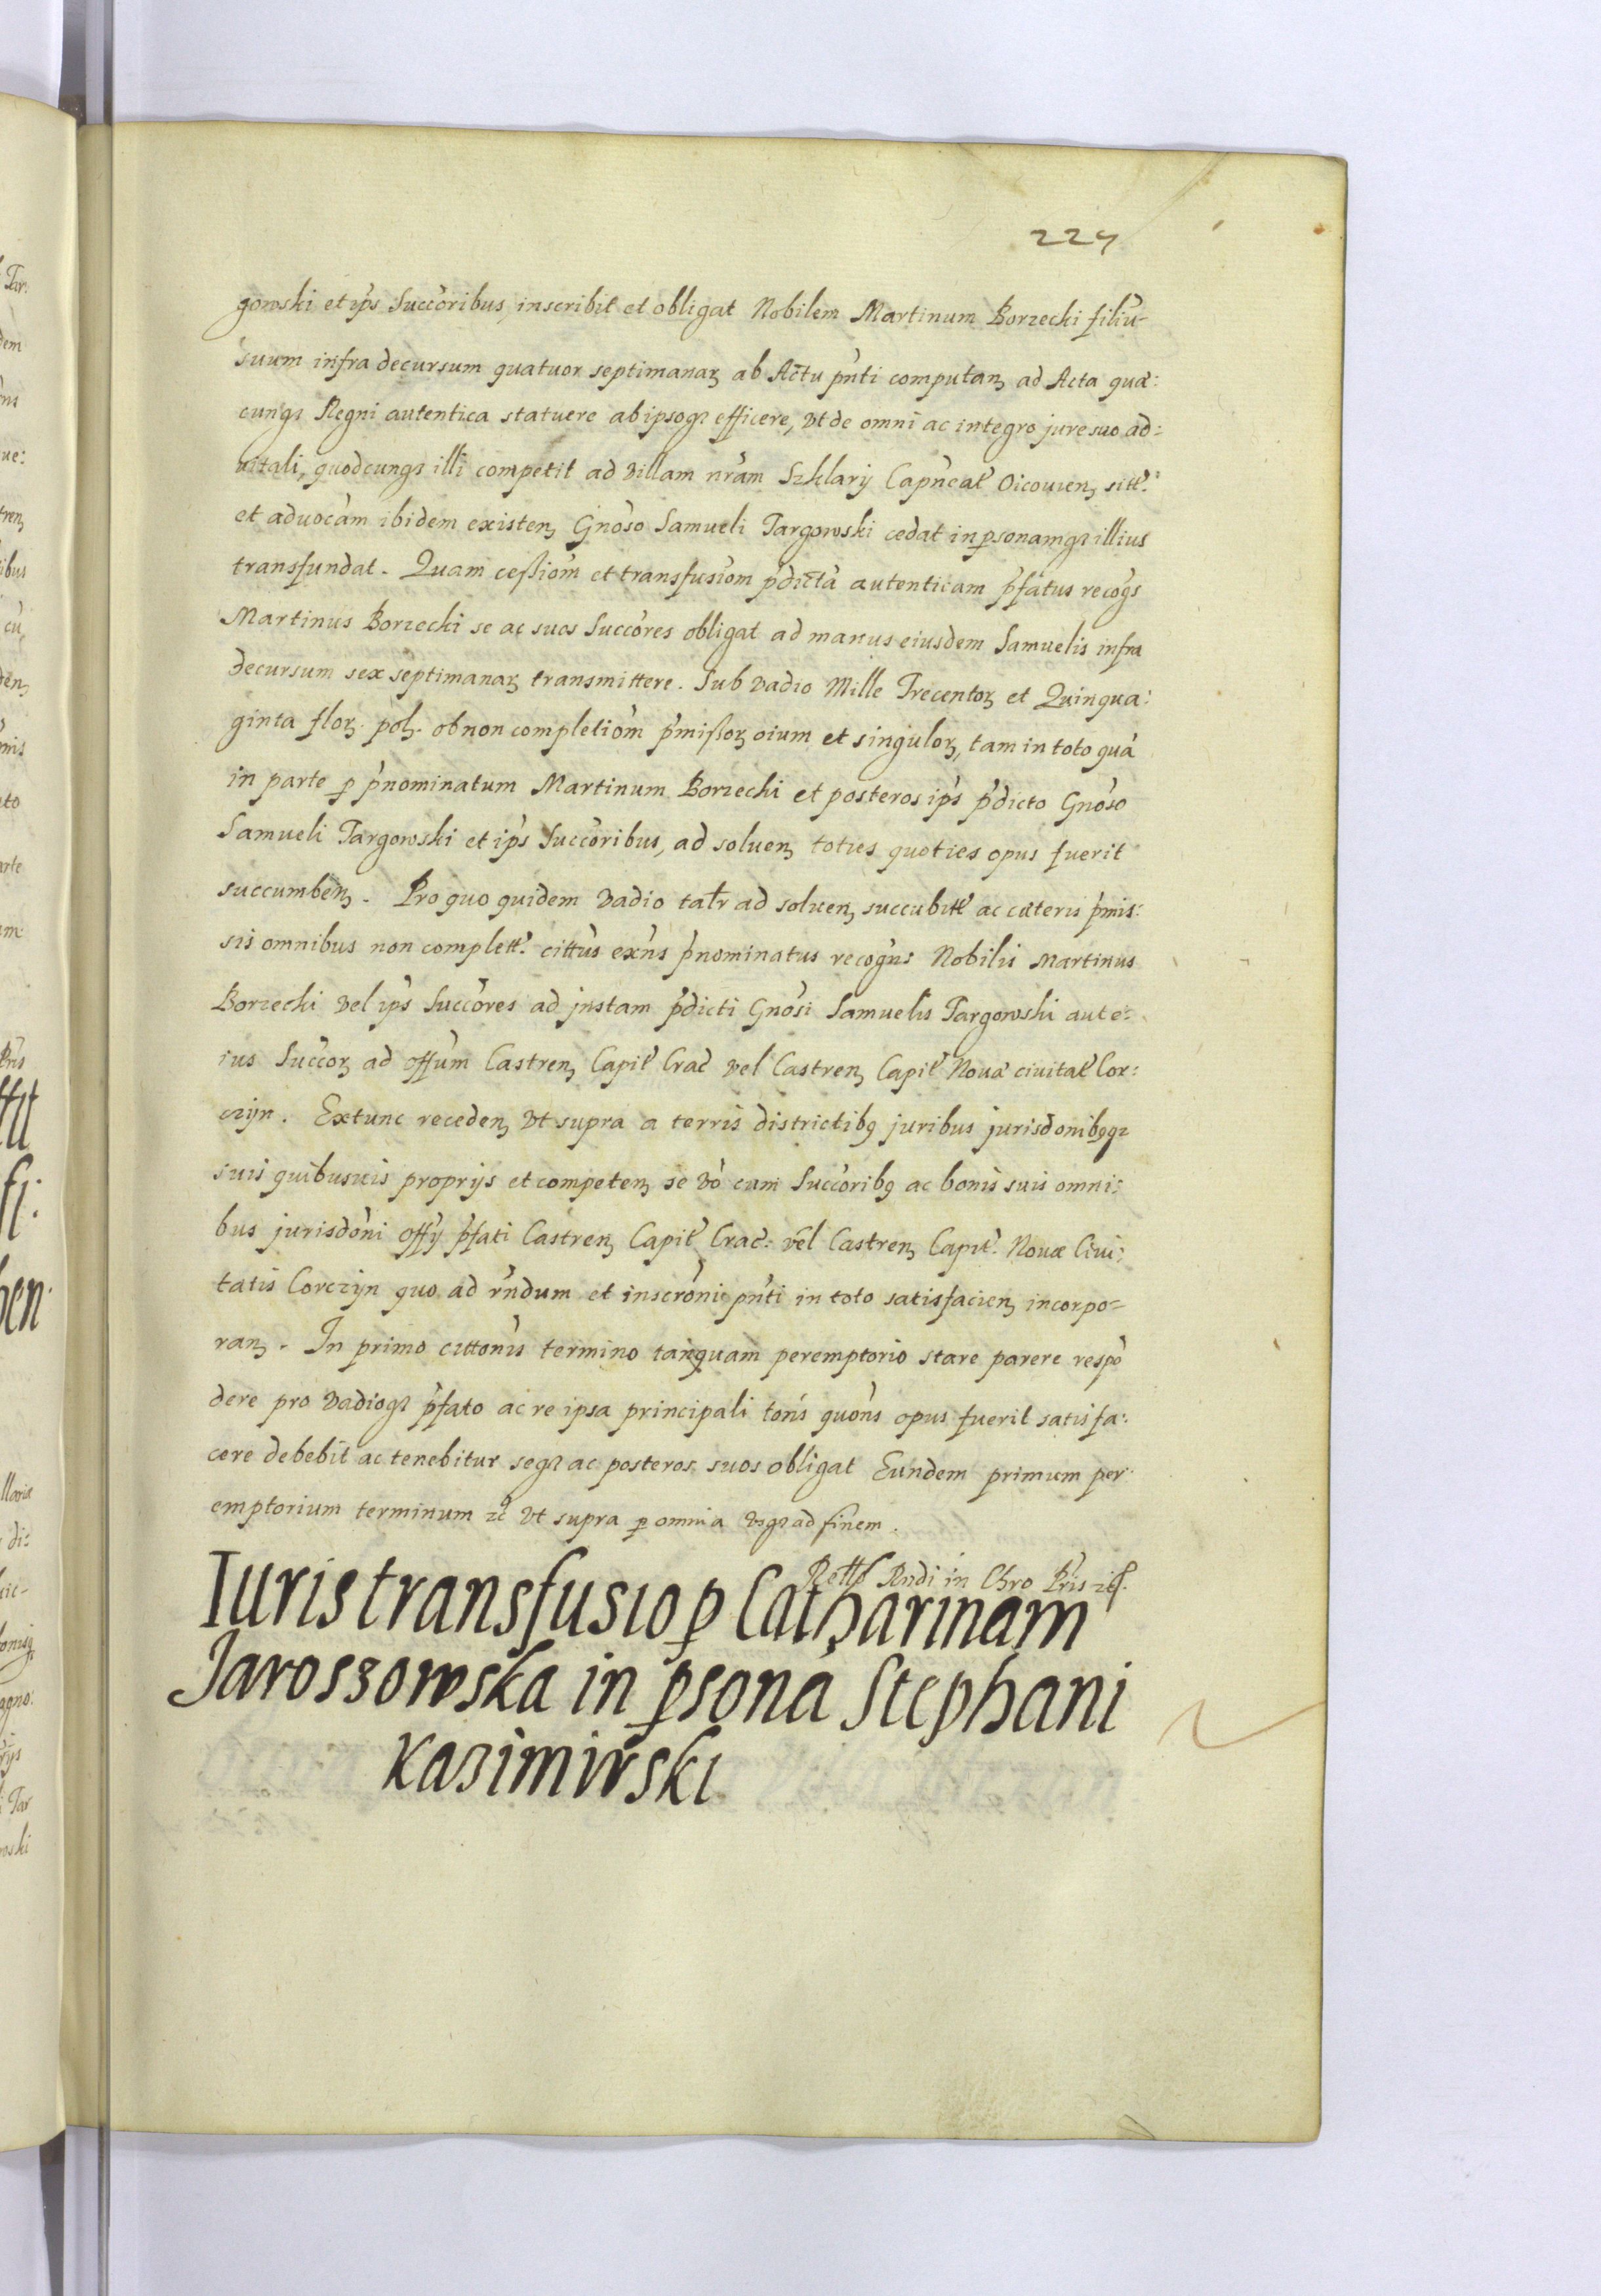 224
gowski et ips Succoribus, inscribit et obligat Nobilem Martinum Borzecki filiu-
suum infra decursum quatuor septimanaꝝ ab Actu pn̄ti computaꝫ ad Acta quæ:
cunqꝫ Regni autentica statuere ab ipsoqꝫ efficere, vt de omni ac integro jure suo ad:
vitali, quodcunqꝫ illi competit ad villam nr̄am Szklary Capn̄eał Oicouien, sitt.
et aduocām ibidem existen, Gnōso Samueli Targowski cedat in ꝑsonamqꝫ illius
transfundat. Quam ceßiom et transfusiom p̄dictā autenticam p̄fatus recogs
Martinus Borzecki se ac suos Succōres obligat ad manus eiusdem Samuelis infra
decursum sex septimanaꝝ transmittere. Sub vadio Mille Trecentoꝝ et Quinqua:
ginta floꝝ. poł. ob non completiom p̄mißoꝝ oium et singuloꝝ, tam in toto quā
in parte ꝑ p̄nominatum Martinum Borzecki et posteros ips p̄dicto Gnōso
Samueli Targowski et ips Succoribus, ad soluen, toties quoties opus fuerit
succumben,. Pro quo quidem vadio talr ad soluen, succubitt ac cæteris p̄mis:
sis omnibus non complett. cittus exn̄s p̄nominatus recogn̄s Nobilis Martinus
Borzecki vel ips Succōres ad jnstam p̄dicti Gnōsi Samuelis Targowski aut e:
ius Succoꝝ ad offūm Castren, Capit Crac vel Castren, Capit Nouæ ciuitat Cor:
czyn. Extunc receden, vt supra a terris districtibꝯ juribus jurisdonibꝯqꝫ
suis quibusuis proprijs et competen, se vō cum Succōribꝯ ac bonis suis omni:
bus jurisdōni offy p̄fati Castren, Capit Crac: vel Castren, Capit. Nouæ Ciui:
tatis Corczyn quo ad rn̄dum et inscrōni pn̄ti in toto satisfacien, incorpo-
ran,. In primo cittonis termino tanquam peremptorio stare parere respō
dere pro vadioqꝫ p̄fato ac re ipsa principali tons quōns opus fuerit satisfa:
cere debebit ac tenebitur seqꝫ ac posteros suos obligat Eundem primum per:
emptorium terminum zc vt supra ꝑ omnia vsqꝫ ad finem.
Retto Rndi in Chro Pris zc.
Iuris transfusio ꝑ Catharinam
Jaroszowska in ꝑsonā Stephani
Kazimirski